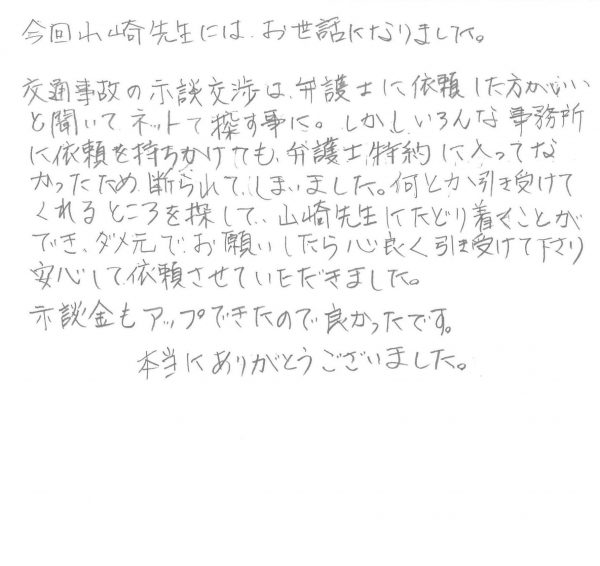 今回山崎先生には、お世話になりました。
交通事故の示談交渉は、弁護士に依頼した方がいい
と聞いて、ネットで探す事に。しかし、いろんな事務所
に依頼を持ちかけても、弁護士特約に入ってな
かったため、断られてしまいました。何とか引き受けて
くれるところを探して、山崎先生にたどり着くことが
でき、ダメ元でお願いしたら心良く引き受けて下さり
安心して依頼させていただきました。
示談金もアップできたので良かったです。
本当にありがとうございました。